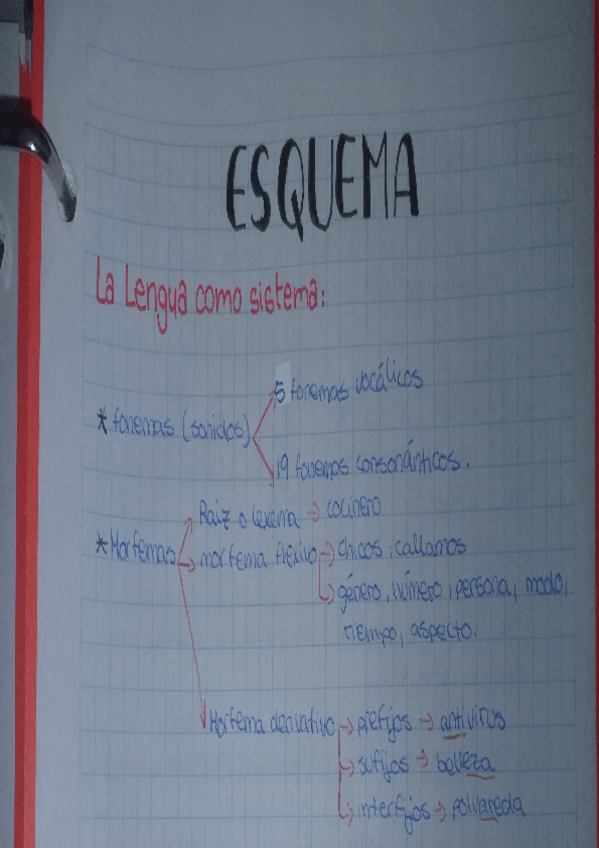 ESQUEMA
La Lengua como sistema:
5 fonemas vocálicos
* fonemas (sonidos)
19 fonemas consonánticos.
Raiz o lexema → cocinero
* Morfemas → morfema flexivo → chicos, callamos
→ género, número, persona, modo,
tiempo, aspecto.
Morfema derivativo → prefijos → antivirus
→ sufijos → belleza
→ interfijos → polvareda